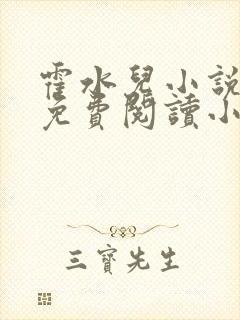 霍水兒小說
免費閱讀小
三寶先生